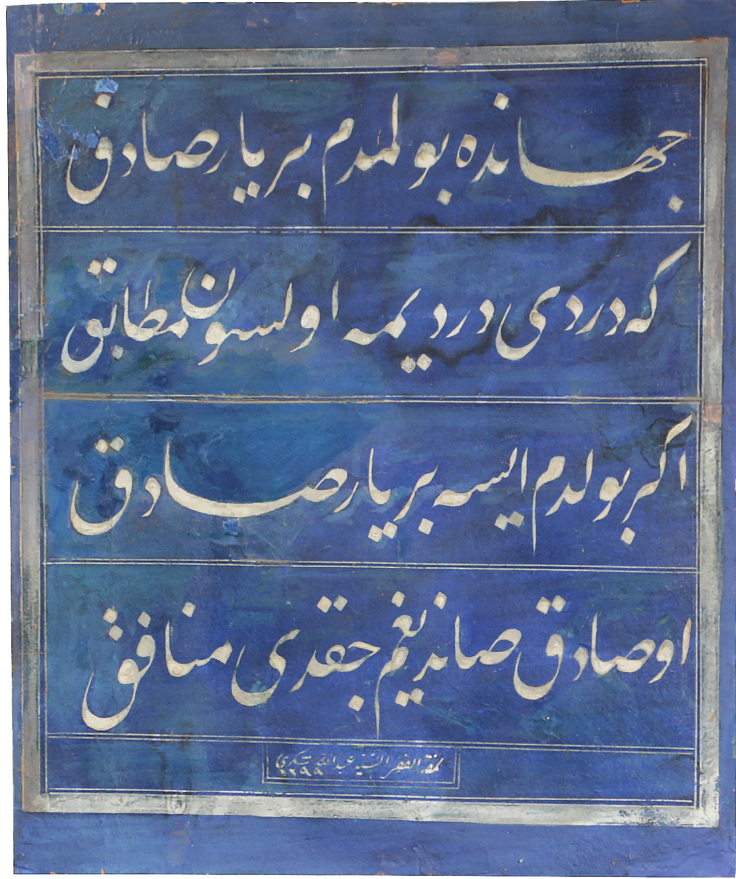 جهانده بولمدم بر یار صادق
که دردی دردیمه اولسون مطابق
اکر بولدم ایسه بر یار صادق
او صادق صاندیغم چقدی منافق
نمقه الفقیر السید عبدالله شکری
١٢٩٨